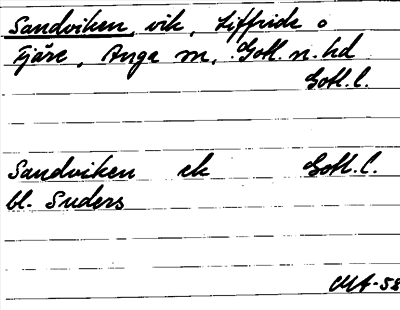 Sandviken, vik, Liffride o
Fjäre, Anga sn, Gotl. n. hd
Gotl. l.
Sandviken ek Gotl. l.
bl. Suders
MA-58